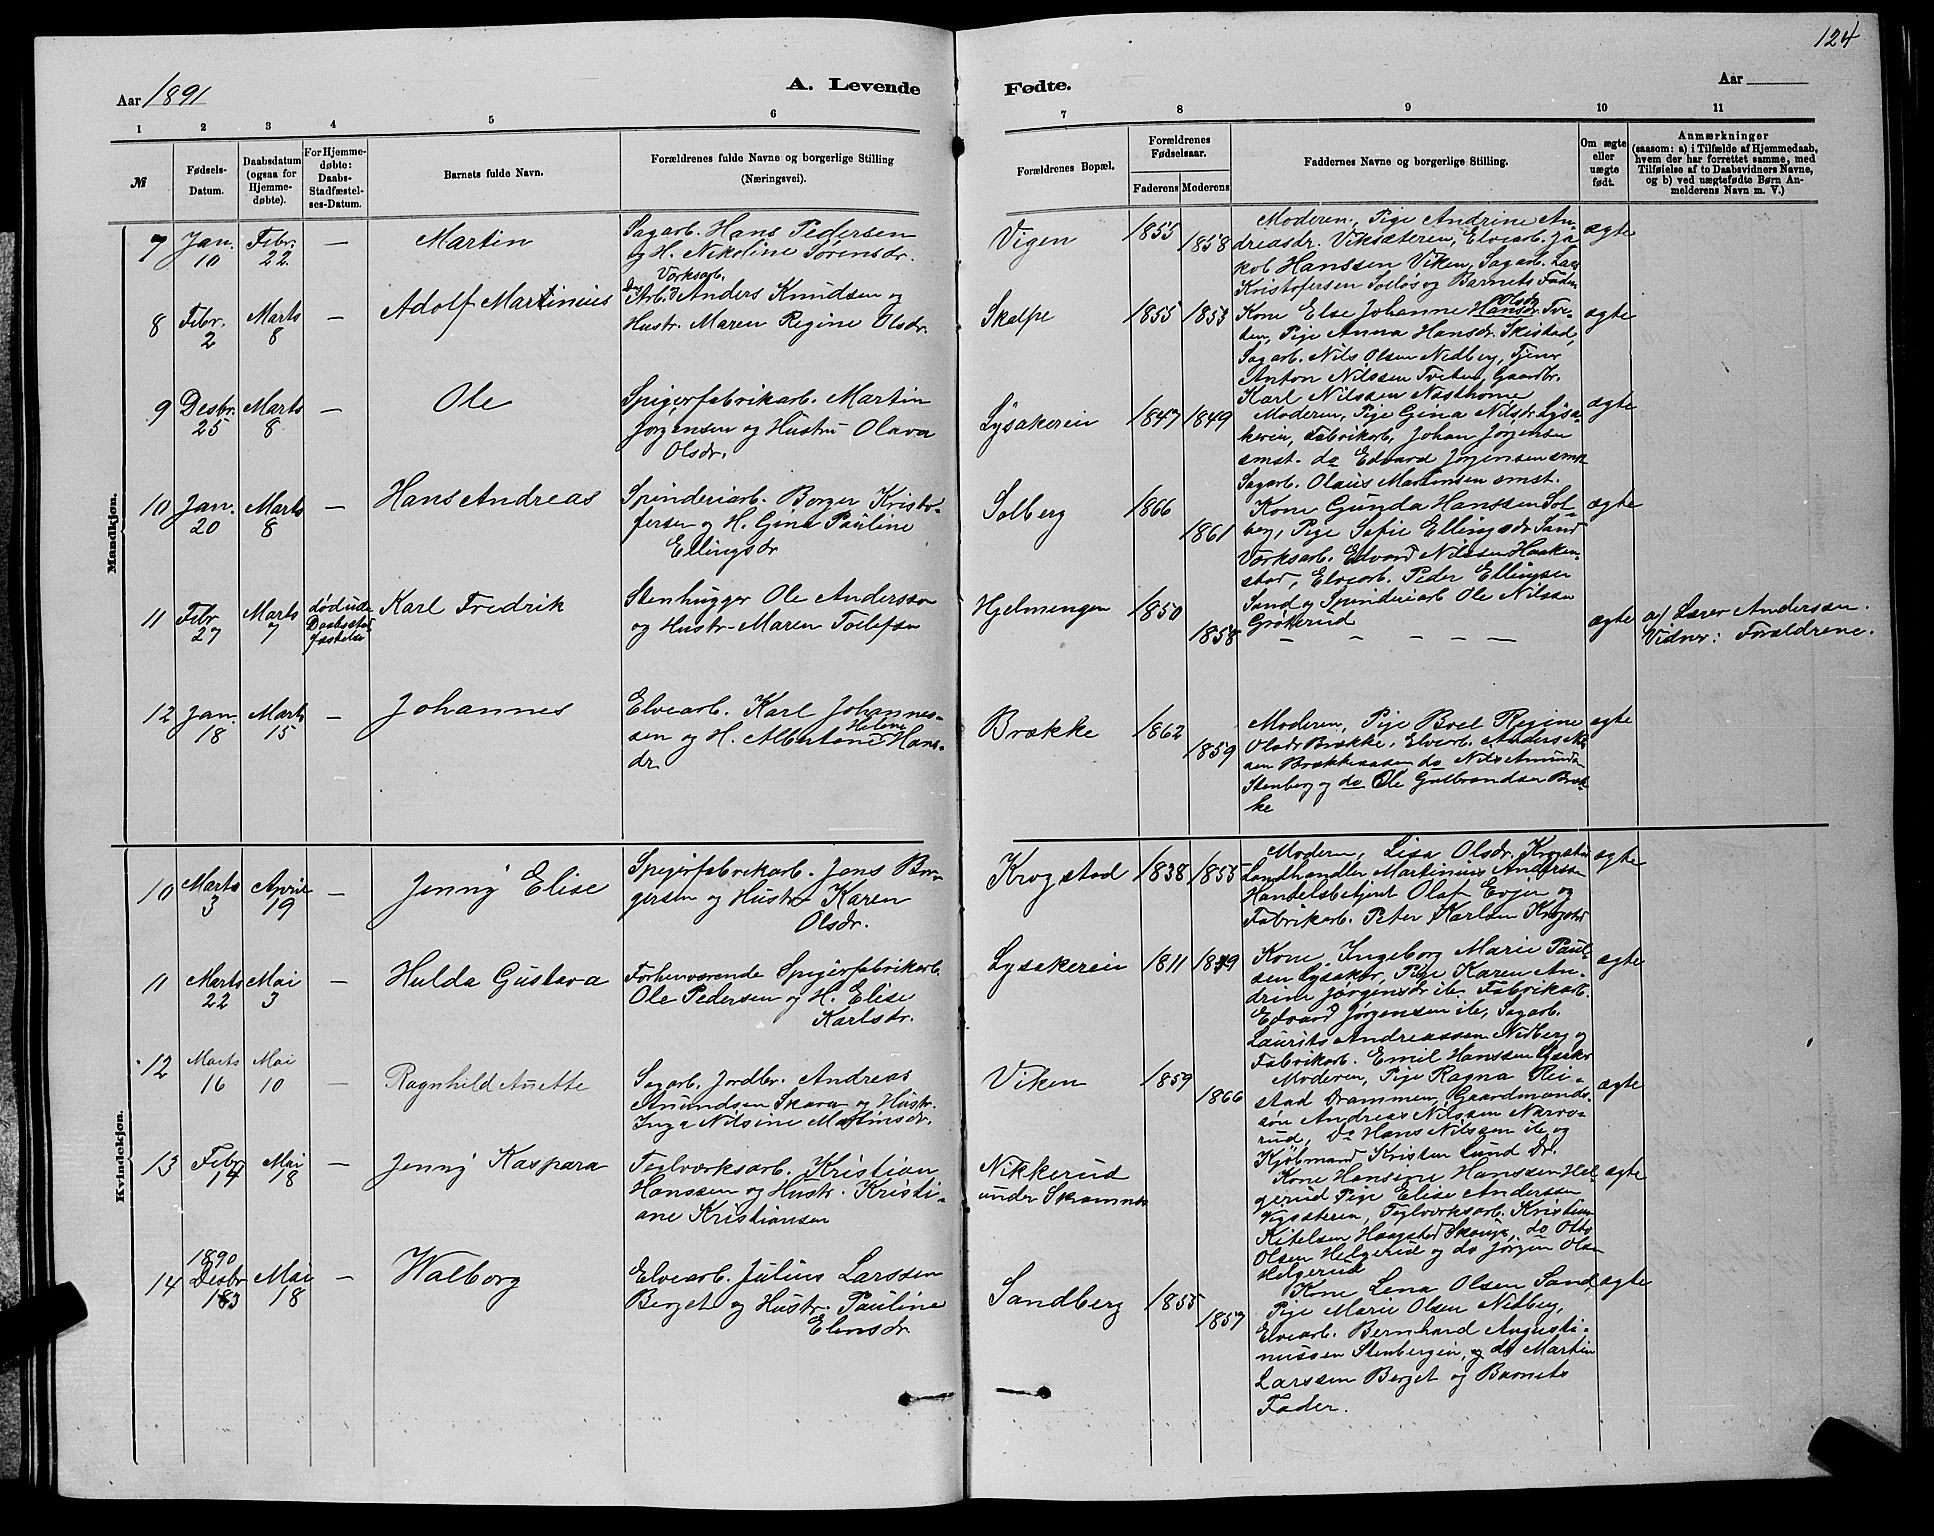 124
Aar 1891
A. Levende
Fødte.
Aar
1 2 3 4 5 6 7 8 9 10 11
№
Fødsels-
Datum.
Daabsdatum
(ogsaa for
Hjemme-
døbte).
For Hjemme-
døbte:
Daabs-
Stadfæstel-
ses-Datum.
Barnets fulde Navn.
Forældrenes fulde Navne og borgerlige Stilling
(Næringsvei).
Forældrenes Bopæl.
Forældrenes
Fødselsaar.
Faderens Moderens
Faddernes Navne og borgerlige Stilling.
Om ægte
eller
uægte
født.
Anmærkninger
(saasom: a) i Tilfælde af Hjemmedaab,
hvem der har forrettet samme, med
Tilføielse af to Daabsvidners Navne,
og b) ved uægtefødte Børn An-
melderens Navn m. V.)
Mandkjøn.
7
Jan.
10
Febr.
22
—
Martin
Sagarb. Hans Pedersen
og H. Nikoline Sørensdr.
Vigen
1855
1858
Moderen, Pige Andrine An-
dreasdr. Viksæteren, Elvearb. Ja-
kob Hanssen Viken, Sagarb. Lars
Kristofersen Solløs og Barnets Fader
ægte
8
Febr.
2
Marts
8
—
Adolf Martinius
Værksarb.
Arb. Anders Knudsen og
Hustr. Maren Regine Olsdr.
Skalpe
1855
1853
Olsdr.
Kone Else Johanne Hansdr. Tve-
ten, Pige Anna Hansdr. Skistad,
Sagarb. Nils Olsen Nedberg, Tjener
Anton Nilssen Tveten, Gaardbr.
Karl Nilssen Næsthorne
ægte
9
Desbr.
25
Marts
8
—
Ole
Spigerfabrikarb. Martin
Jørgensen og Hustru Olava
Olsdr.
Lysakereien
1847
1849
Moderen, Pige Gina Nilsdr. Lysa-
kereien, Fabrikarb. Johan Jørgensen
smst. do Edvard Jørgensen smst
Sagarb. Olaus Martinsen smst.
ægte
10
Jan.
20
Marts
8
—
Hans Andreas
Spinderiarb. Borger Kristo-
fersen og H. Gina Pauline
Ellingsdr
Solberg
1866
1861
Kone Gunda Hanssen Sol-
berg, Pige Sofie Ellingsdr Sand
Værksarb. Edvard Nilssen Haaken-
stad, Elvearb. Peder Ellingsen
Sand og Spinderiarb Ole Nilssen
Grøterud
ægte
11
Febr.
27
Marts
7
død uden
Daabsstad-
fæstelse
Karl Fredrik
Stenhugger Ole Anderssen
og Hustr. Maren Tollefsen
Hjelmengen
1850
1858
— — — — —
ægte
a/ Lærer Andersen.
Vidner: Forældrene.
12
Jan.
18
Marts
15
—
Johannes
Elvearb. Karl Johannes-
Helene
sen og H. Albertine Hans-
dr.
Brække
1862
1859
Moderen, Pige Boel Regine
Olsdr Brække, Elvearb. Anders
sen Brækkeaasen do Nils Amunds.
Stenberg og do Ole Gulbrandsen Bræk-
ke
ægte
Kvindekjøn.
10
Marts
3
April
19
—
Jenny Elise
Spigerfabrikarb. Jens Bor-
gersen og Hustr. Karen
Olsdr.
Krogstad
1838
1855
Modern, Lisa Olsdr. Krogstad
Landhandler Martinius Anderssen
Handelsbetjent Olaf Evjen og
Fabrikarb. Peter Karlsen Krogstad
ægte
11
Marts
22
Mai
3
—
Hulda Gustava
Forhenværende Spigerfabrikarb.
Ole Pedersen og H. Elise
Karlsdr.
Lysakereien
1811
1849
Kone Ingeborg Marie Paul-
sen Lysaker, Pige Karen An-
drine Jørgensdr ib. Fabrikarb.
Edvard Jørgensen ib, Sagarb.
Laurits Andreassen Nedberg og
Fabrikarb. Emil Hanssen Lysaker
ægte
12
Marts
16
Mai
10
—
Ragnhild Anette
Sagarb. Jordbr. Andreas
Amundsen Skara og Hustr.
Inga Nilsine Martinsdr.
Viken
1859
1866
Moderen, Pige Ragna Rei-
stad Drammen, Gaardmands-
søn Andreas Nilssen Narve-
rud, Do Hans Nilssen ib og
Kjøbmand Kristen Lund Dr.
ægte
13
Febr
14
Mai
18
—
Jenny Kaspara
Teglværksarb. Kristian
Hanssen og Hustr. Kristi-
ane Kristiansen
Nikkerud
under Skramnes
Kone Hansine Hanssen Hel-
gerud Pige Elise Andersen
Vigsæteren, Teglværksarb. Kristian
Kitelsen Haagstad Skouge, do Otto
Olsen Helgerud og do Jørgen Olsen
Helgerud
ægte
14
1890
Desbr
183
Mai
18
—
Walborg
Elvearb. Julius Larssen
Berget og Hustr. Pauline
Elensdr.
Sandberg
1855
1857
Kone Lena Olsen Sand,
Pige Marie Olsen Nedberg,
Elvearb. Bernhard Augusti-
nussen Stenbergeien, og do Martin
Larssen Berget og Barnets
Fader.
ægte